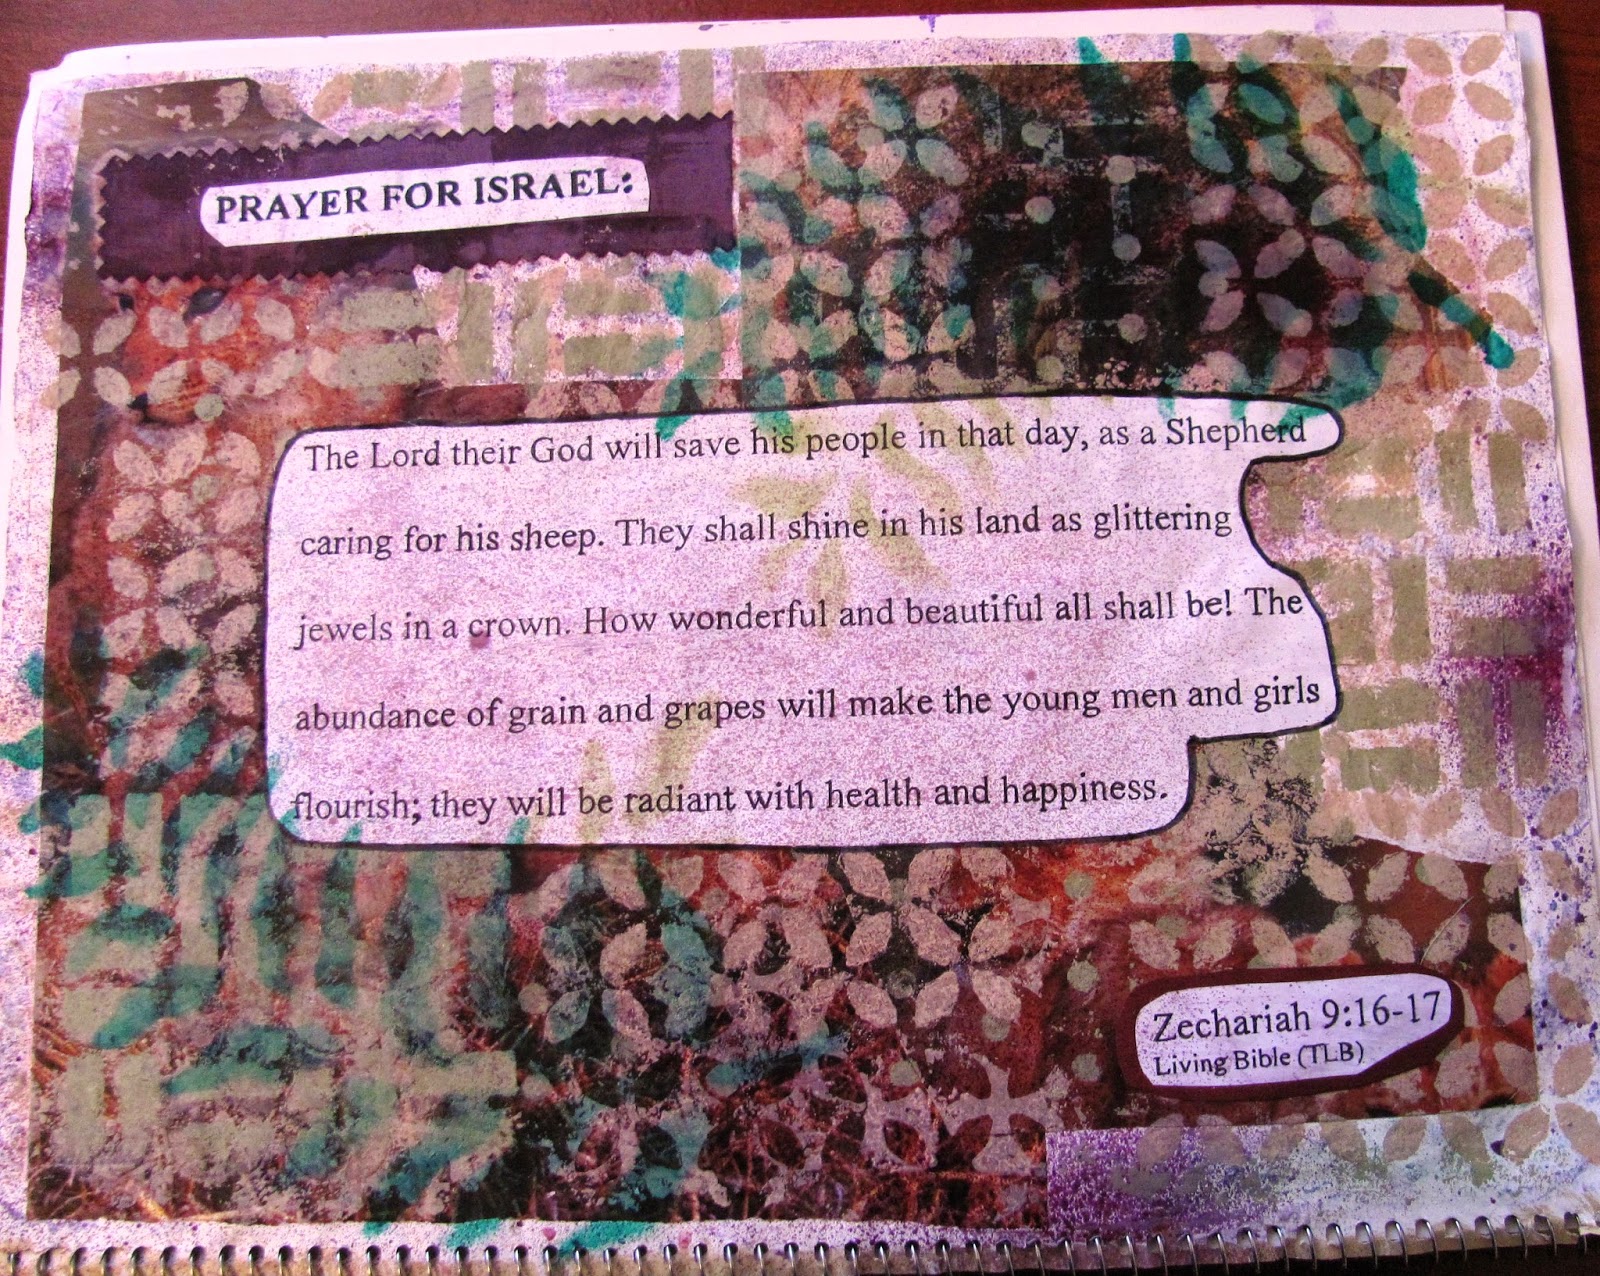 PRAYER FOR ISRAEL:
The Lord their God will save his people in that day, as a Shepherd
caring for his sheep. They shall shine in his land as glittering
jewels in a crown. How wonderful and beautiful all shall be! The
abundance of grain and grapes will make the young men and girls
flourish; they will be radiant with health and happiness.
Zechariah 9:16-17
Living Bible (TLB)